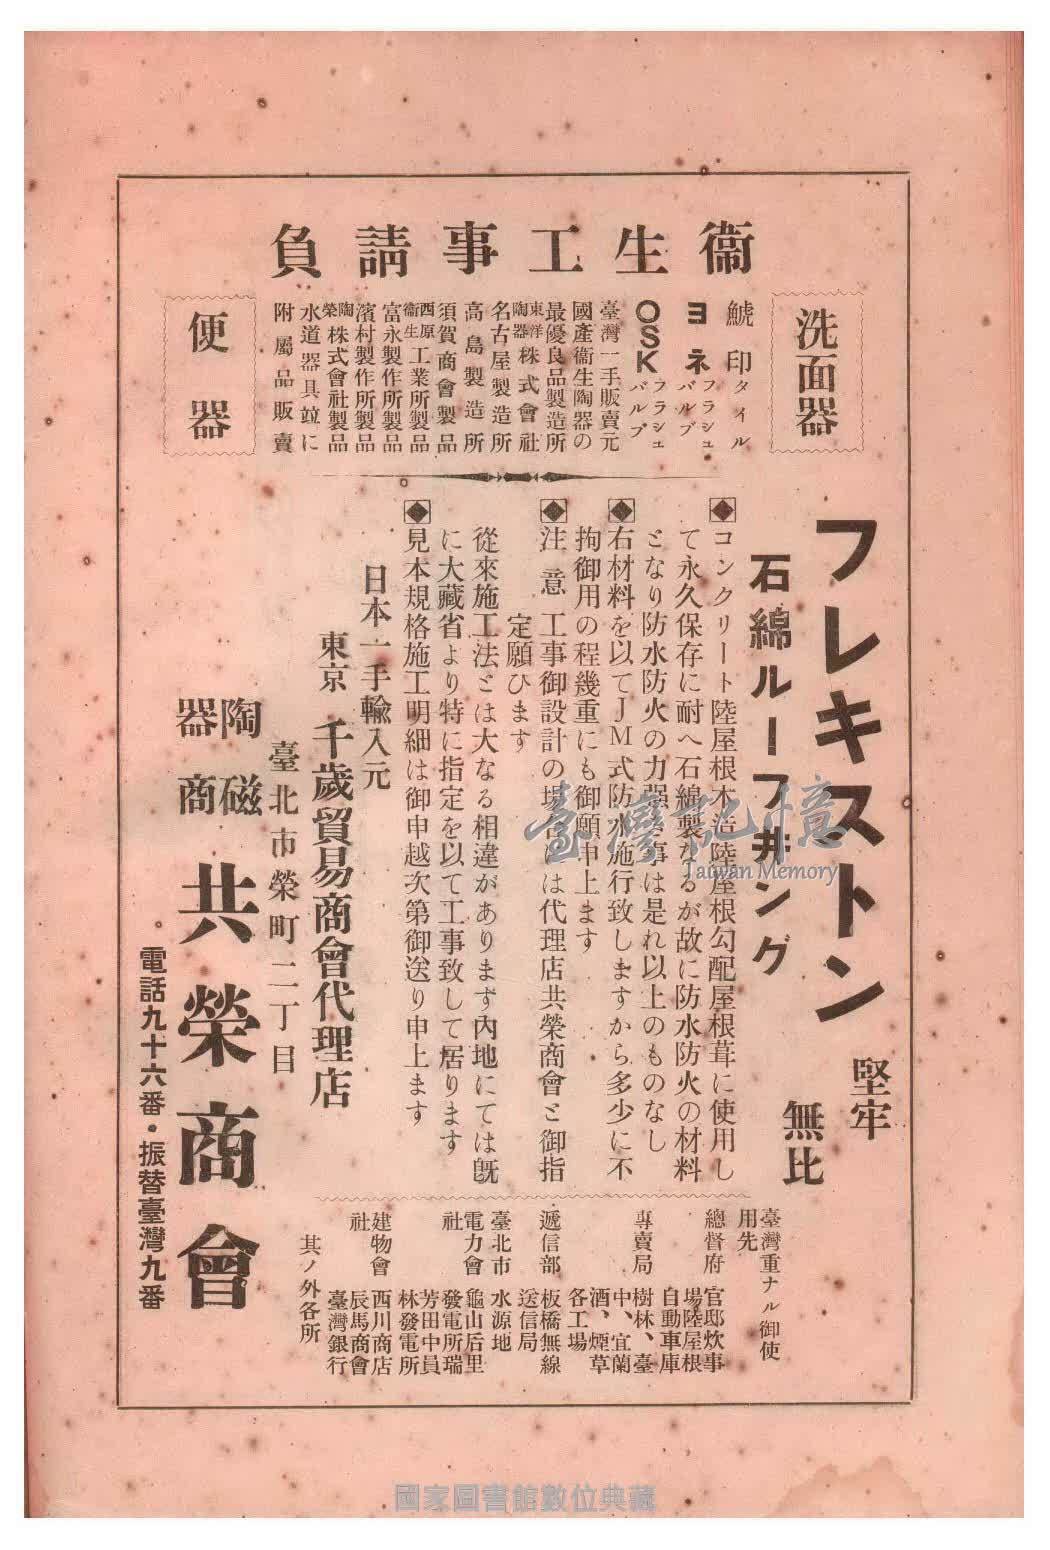 衞生工事請負
洗面器
鯱印タイル
ヨネフラシュバルブ
OSKフラシュバルブ
臺灣一手販賣元
國產衞生陶器の
最優良品製造所
東洋陶器株式會社
名古屋製造所
高島製造所
須賀商會製品
西原衞生工業所製品
富永製作所製品
濱村製作所製品
陶榮株式會社製品
水道器具竝に
附屬品販賣
便器
フレキストン
石綿ルーフ井ング
堅牢
無比
コンクリート陸屋根木造陸屋根勾配屋根葺に使用し
て永久保存に耐へ石綿製なるが故に防水防火の材料
となり防水防火の力强き事は是れ以上のものなし
右材料を以てJM式防水施行致しますから多少に不
拘御用の程幾重にも御願申上ます
注意 工事御設計の場合は代理店共榮商會と御指
定願ひます
從來施工法とは大なる相違があります內地にては旣
に大藏省より特に指定を以て工事致して居ります
見本規格施工明細は御申越次第御送り申上ます
日本一手輸入元
東京 千歲貿易商會代理店
臺北市榮町二丁目
陶磁
器商
共榮商會
電話九十六番・振替臺灣九番
臺灣重ナル御使
用先
總督府 官邸炊事
場陸屋根
自動車庫
專賣局 樹林、臺
中、宜蘭
酒、煙草
各工場
遞信部 板橋無線
送信局
臺北市 水源地
電力會社 龜山后里
發電所瑞
芳田中員
林發電所
建物會社 西川商店
辰馬商會
臺灣銀行
其ノ外各所
臺灣記憶
Taiwan Memory
國家圖書館數位典藏